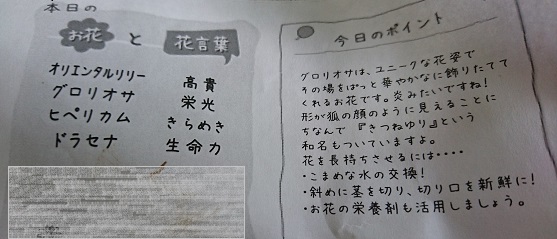 本日の
お花 と 花言葉
オリエンタルリリー 高貴
グロリオサ 栄光
ヒペリカム きらめき
ドラセナ 生命力
今日のポイント
グロリオサは、ユニークな花姿で
その場をぱっと華やかなに飾りたてて
くれるお花です。炎みたいですね!
形が狐の顔のように見えることに
ちなんで『きつねゆり』という
和名もついていますよ。
花を長持ちさせるには・・・・
・こまめな水の交換!
・斜めに茎を切り、切り口を新鮮に!
・お花の栄養剤も活用しましょう。